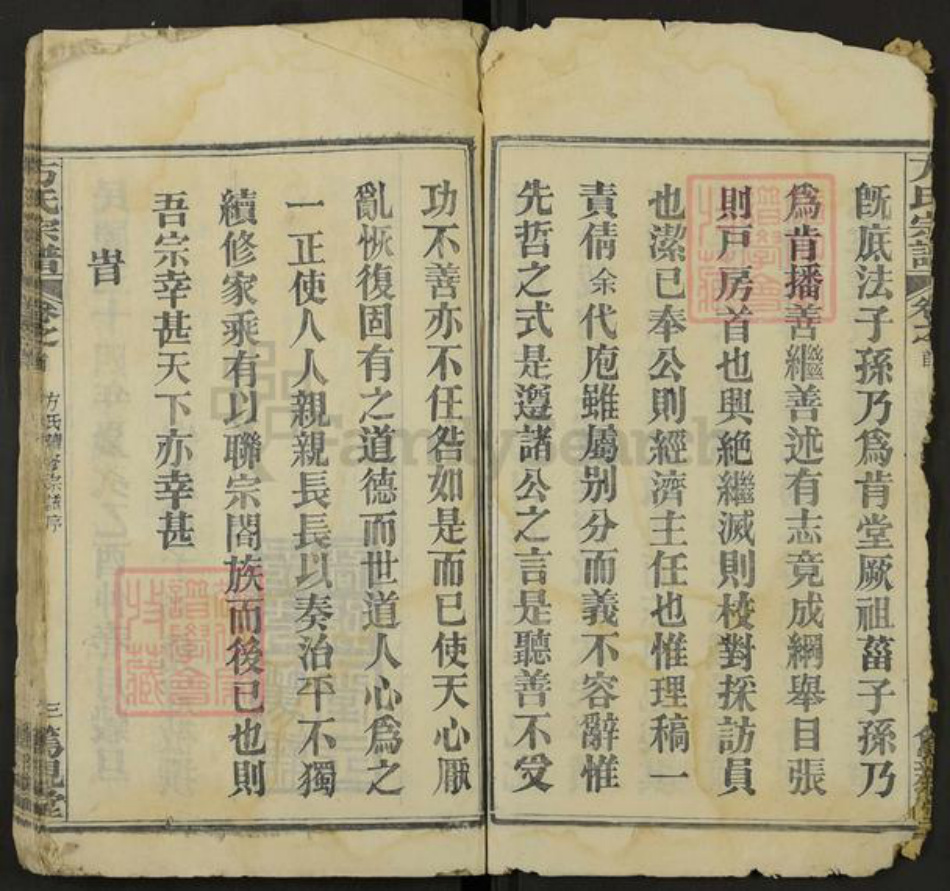 既底法子孫乃爲肯堂厥祖菑子孫乃
爲肯播善繼善述有志竟成綱舉目張
則戸房首也興絶繼滅則校對採訪員
也潔已奉公則經濟主任也惟理稿一
責倩余代庖雖屬别分而義不容辭惟
先哲之式是遵諸公之言是聽善不受
功不善亦不任咎如是而已使天心厭
亂恢復固有之道德而世道人心爲之
一正使人人親親長長以奏治平不獨
續修家乘有以聯宗閤族而後已也則
吾宗幸甚天下亦幸甚
旹
方氏宗譜
卷之首
方氏續修宗譜序
三
FamilySearch
譜學會
收藏